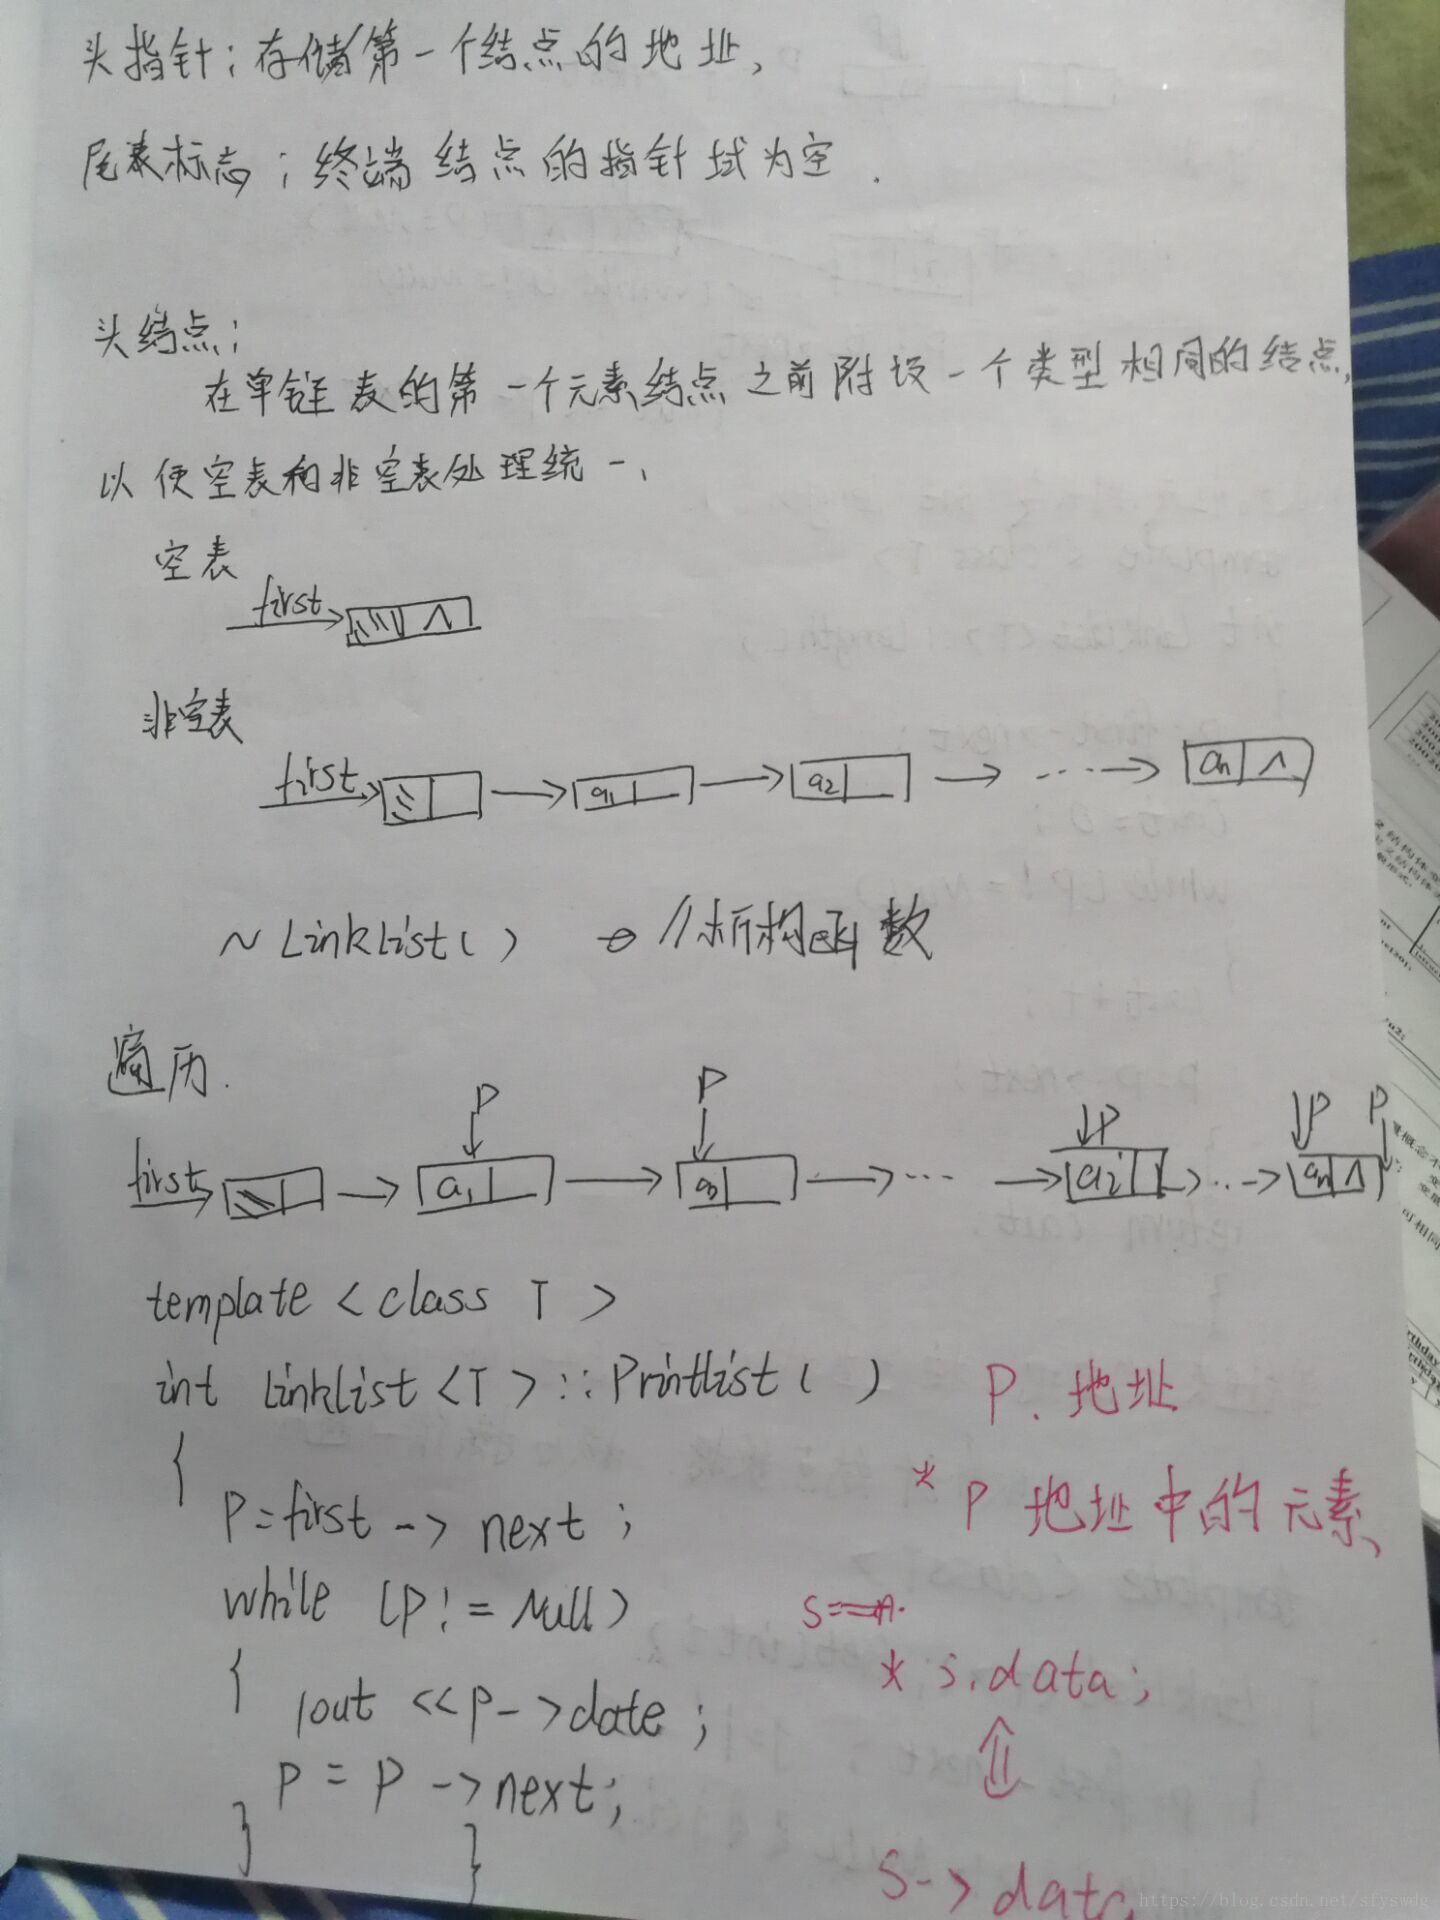 头指针：存储第一个结点的地址，
尾表标志；终端结点的指针域为空.
头结点；
在单链表的第一个元素结点之前附设一个类型相同的结点，
以便空表和非空表处理统一、
空表
first Λ
非空表
first a1 a2 ... an Λ
~LinkList() → //析构函数
遍历.
P P P P P
first a1 a2 ... ai ... an Λ
template <class T>
int LinkList<T>::Printlist( )
P. 地址
{
* P 地址中的元素、
P=first -> next ;
while (P!=Null)
* s.data;
{ cout <<P->date ;
P = P ->next;
}
}
s->data
https://blog.csdn.net/sfyswdg